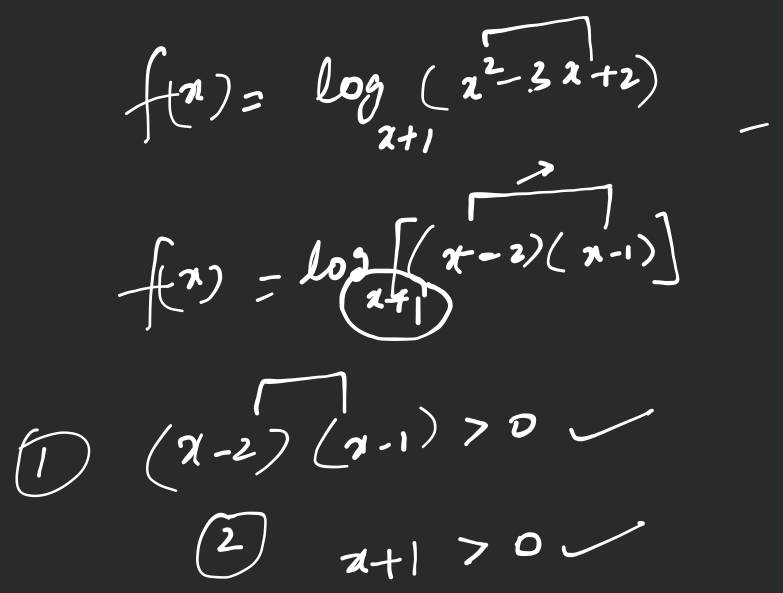 f(x) = log_{x+1} (x² - 3x + 2)
f(x) = log_{x+1} [(x-2)(x-1)]
① (x-2)(x-1) > 0 ✓
② x+1 > 0 ✓